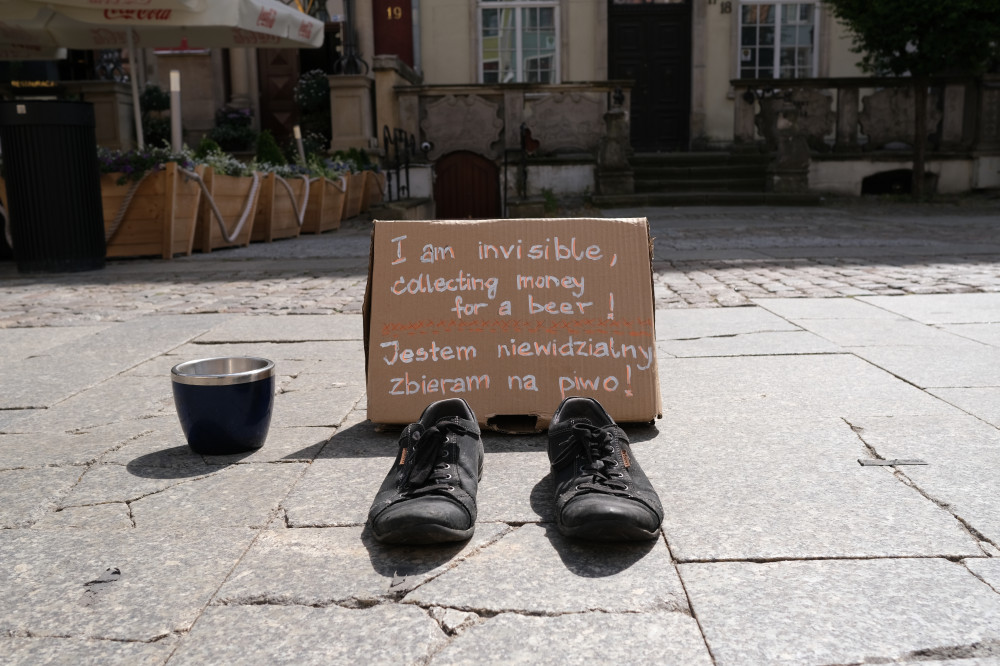 Coca-Cola
Coca-Cola
19
I am invisible,
collecting money
for a beer!
Jestem niewidzialny
zbieram na piwo!